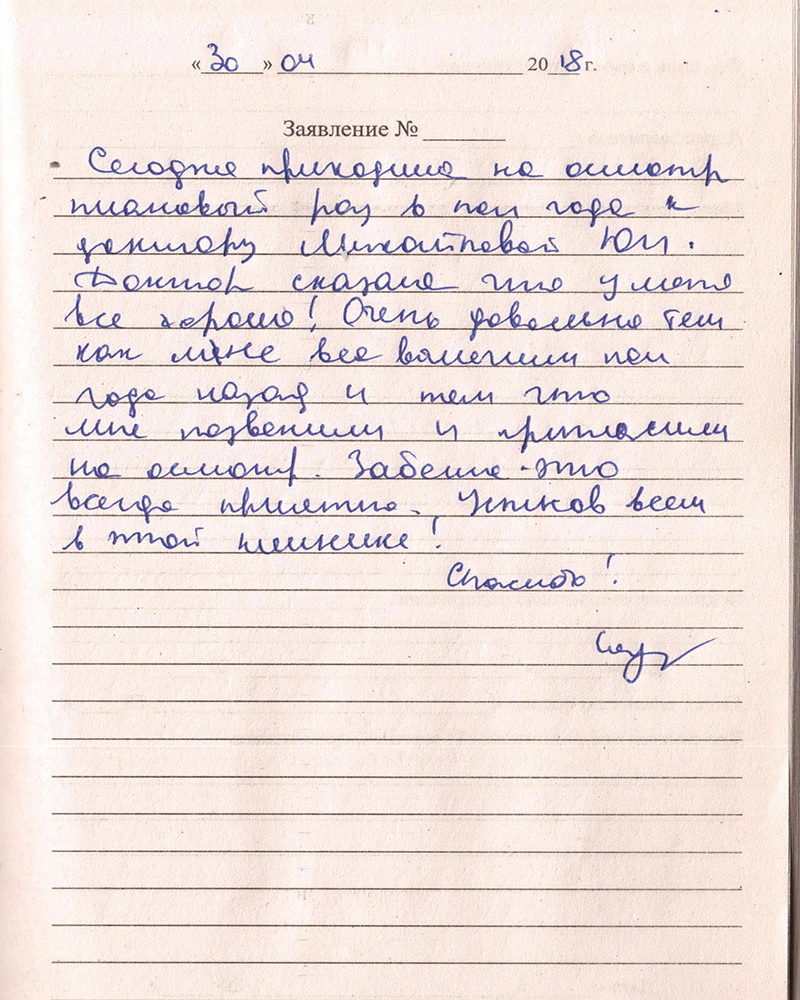 «30» 04 2018 г.
Заявление №
Сегодня приходила на осмотр
плановый раз в пол года к
доктору Михайловой Ю.И.
Доктор сказала что у меня
все хорошо! Очень довольна тем
как мне все вылечили пол
года назад и тем что
мне позвонили и пригласили
на осмотр. Забота - это
всегда приятно. Успехов всем
в этой клинике!
Спасибо!